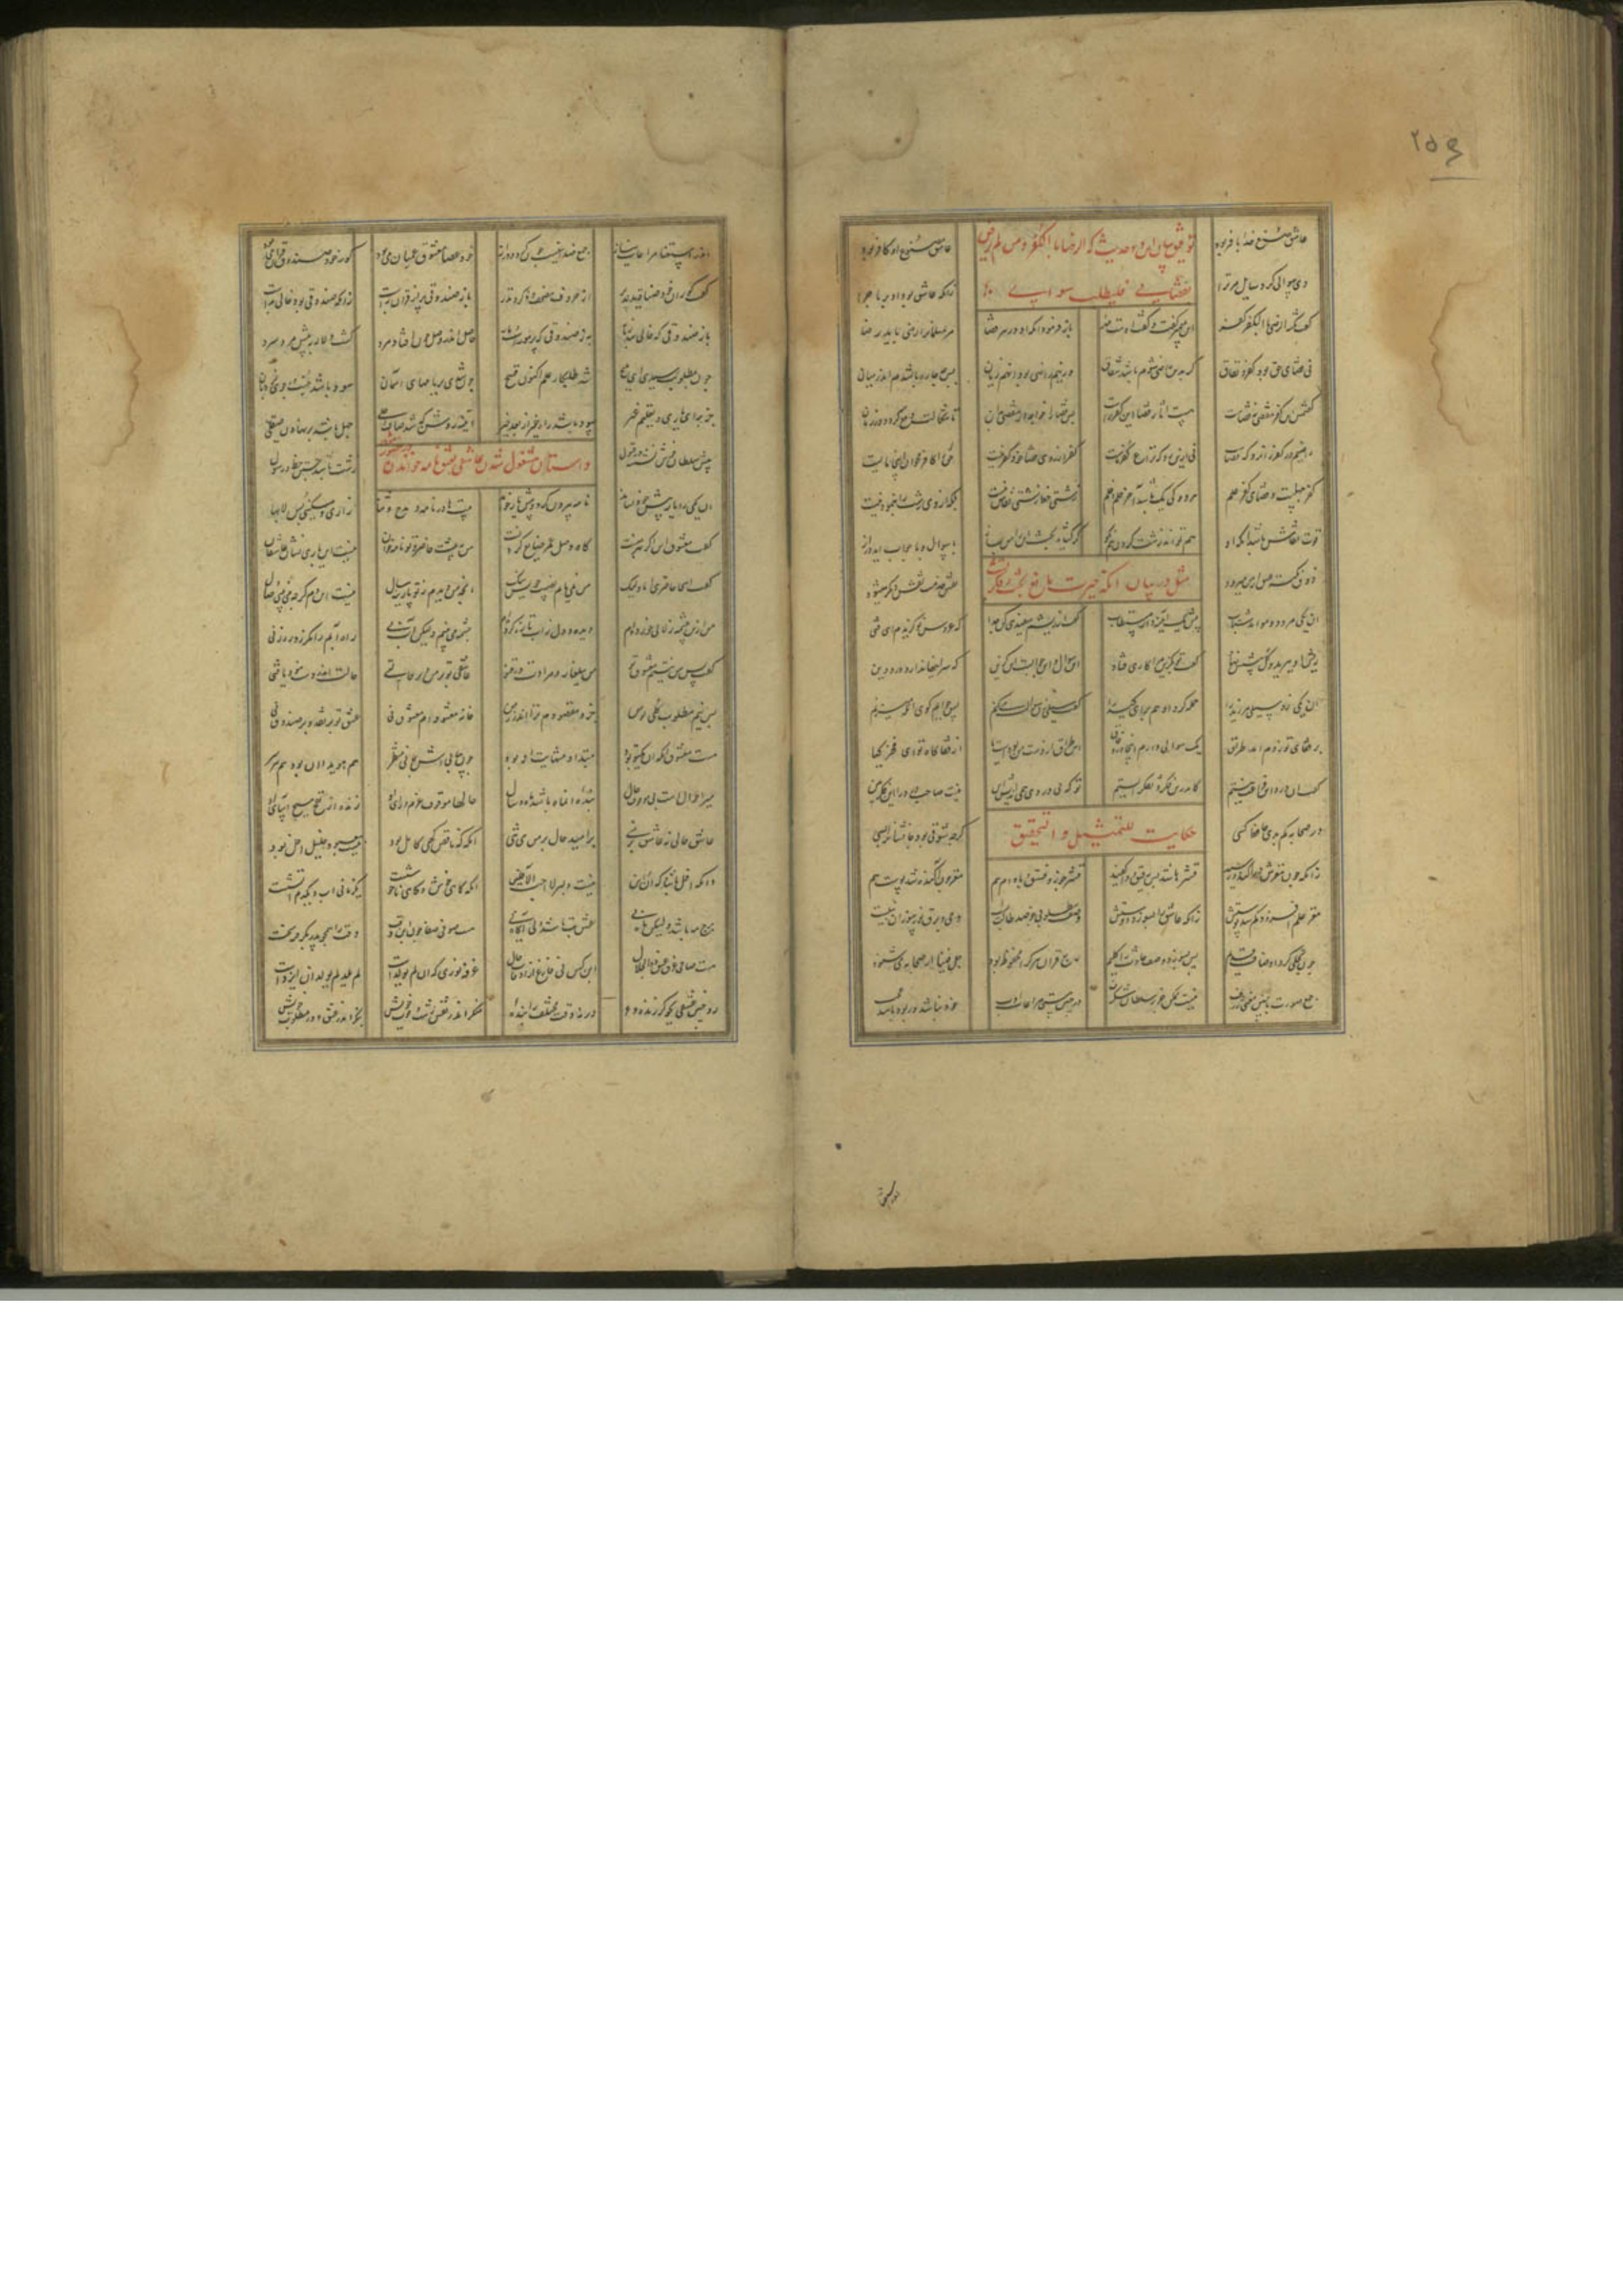 ۲۵۹
عاشق صنع خدا با فر بود عاشق مصنوع او کافر بود
توفیق میان این دو حدیث که الرضا بالکفر کفر و من لم یرض
بقضایی فلیطلب سوایی
دی سوالی کرد سایل مر مرا زانکه عاشق بود او بر ماجرا
گفت نکته الرضا بالکفر کفر این پیمبر گفت و گفت اوست مهر باز فرمود او که اندر هر قضا مر مسلمان را رضا باید رضا
نی قضای حق بود کفر و نفاق گر بدین راضی شوم باشد شقاق ور نیم راضی بود آن هم زیان پس چه چاره باشدم اندر میان
گفتمش این کفر مقضی نه قضاست هست آثار قضا این کفر راست پس قضا را خواجه از مقضی بدان تا شکالت دفع گردد در زمان
راضیم در کفر زان رو که قضاست نی ازین رو که نزاع و خبث ماست کفر از روی قضا خود کفر نیست حق را کافر مخوان اینجا مایست
کفر جهلست و قضای کفر علم هر دو کی یک باشد آخر حلم خلم زشتی خط زشتی نقاش نیست بلکه از وی زشت را بنمودنیست
قوت نقاش باشد آنکه او هم تواند زشت کردن هم نکو گر گشایم بحث این را من بساز تا سوال و تا جواب آید دراز
ذوق نکته عشق از من میرود نقش خدمت نقش دیگر میشود
مثل در بیان آنکه حیرت مانع بحث و فکرتست
آن یکی مرد دو مو آمد شتاب پیش یک آیینه دار مستطاب گفت از ریشم سفیدی کن جدا که عروس نو گزیدم ای فتی
ریش او ببرید و کل پیشش نهاد گفت تو بگزین مرا کاری فتاد این سوال و آن جوابست آن گزین که سر اینها ندارد درد دین
آن یکی زد سیلیی مر زید را حمله کرد او هم برای کید را گفت سیلی زن سوالت میکنم پس جوابم گوی آنگه میزنم
بر قفای تو زدم آمد طراق یک سوالی دارم اینجا در وفاق این طراق از دست من بودست یا از قفاگاه تو ای فخر کیا
گفت از درد این فراغت نیستم که درین فکر و تفکر بیستم تو که بی دردی همی اندیش این نیست صاحب درد را این فکر هین
حکایت للتمثیل و التحقیق
در صحابه کم بدی حافظ کسی گرچه شوقی بود جانشان را بسی
زانکه چون مغزش در آگند و رسید قشرها شد بس رقیق و واکفید قشر جوز و فستق و بادام هم مغز چون آگندشان شد پوست کم
مغز علم افزود کم شد پوستش زانکه عاشق را بسوزد دوستش وصف مطلوبی چو ضد طالبیست وحی و برق نور سوزان نبیست
چون تجلی کرد اوصاف قدیم پس بسوزد وصف حادث را گلیم ربع قرآن هر که را محفوظ بود جل فینا از صحابه می شنود
جمع صورت با چنین معنی ژرف نیست ممکن جز ز سلطانی شگرف در چنین مستی مراعات ادب خود نباشد ور بود باشد عجب
اندر استغنا مراعات نیاز جمع ضدینست چون گرد و دراز خود عصا معشوق عمیان می بود کور خود صندوق قرآن می بود
گفت کوران خود صنادیقند پر از حروف مصحف و ذکر و نذر باز صندوقی پر از قرآن بهست زانکه صندوقی بود خالی بدست
باز صندوقی که خالی شد ز بار به ز صندوقی که پر موشست و مار حاصل اندر وصل چون افتاد مرد گشت دلاله به پیش مرد سرد
چون به مطلوبت رسیدی ای ملیح شد طلبکاری علم اکنون قبیح چون شدی بر بامهای آسمان سرد باشد جست و جوی نردبان
جز برای یاری و تعلیم غیر سرد باشد راه خیر از بعد خیر آینه روشن که شد صاف و جلی جهل باشد بر نهادن صیقلی
پیش سلطان خوش نشسته در قبول زشت باشد جستن نامه و رسول
داستان مشغول شدن عاشقی بعشق نامه خواندن
آن یکی را یار پیش خود نشاند نامه بیرون کرد و پیش یار خواند بیتها در نامه و مدح و ثنا زاری و مسکینی و بس لابها
گفت معشوق این اگر بهر منست گاه وصل این عمر ضایع کردنست من به پیشت حاضر و تو نامه خوان نیست این باری نشان عاشقان
گفت اینجا حاضری اما ولیک من نمی یابم نصیب خویش نیک آنچه میدیدم ز تو پارینه سال نیست این دم گرچه می بینم وصال
من ازین چشمه زلالی خورده ام دیده و دل ز آب تازه کرده ام چشمه می بینم ولیکن آب نی راه آبم را مگر زد ره زنی
گفت پس من نیستم معشوق تو من ببلغار و مرادت در قتو عاشقی تو بر من و بر حالتی حالت اندر دست نبود یا فتی
پس نیم مطلوب کلی تو من جزو مقصودم ترا اندر زمن خانه معشوقه ام معشوق نی عشق بر نقدست بر صندوق نی
هست معشوق آنکه او یک تو بود مبتدا و منتهایت او بود چون بیابی اش نباشی منتظر هم هویدا او بود هم نیز سر
میر احوالست نی موقوف حال بنده آن ماه باشد ماه و سال
عاشق حالی نه عاشق بر منی بر امید حال بر من می تنی آنکه گه ناقص گهی کامل بود
وانکه آفل باشد و گه آن و این نیست دلبر لا احب الافلین آنکه گاهی خوش و گه ناخوشست یک زمانی آب و یک دم آتشست
برج مه باشد ولیکن ماه نی نقش بت باشد ولی آگاه نی هست صوفی صفا چون ابن وقت وقت را همچون پدر بگرفته سخت
هست صافی غرق عشق ذوالجلال ابن کس نی فارغ از اوقات و حال غرقه نوری که او لم یولدست لم یلد لم یولد آن ایزدست
رو چنین عشقی بجو گر زنده ای ورنه وقت مختلف را بنده ای منگر اندر نقش زشت و خوب خویش بنگر اندر عشق و در مطلوب خویش